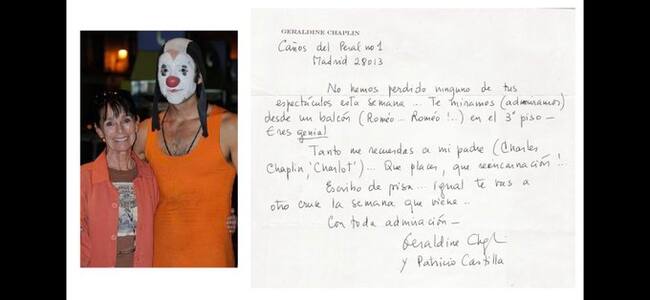 GERALDINE CHAPLIN
Caños del Peral nº 1
Madrid 28013
No hemos perdido ninguno de tus
espectáculos esta semana... Te miramos (admiramos)
desde un balcón (Roméo... Roméo!..) en el 3º piso –
Eres genial
Tanto me recuerdas a mi padre (Charles
Chaplin, 'Charlot')... Que placer, que reencarnación!
Escribo de prisa... igual te vas a
otro cruce la semana que viene..
Con toda admiración –
Geraldine Chaplin
y Patricio Castilla